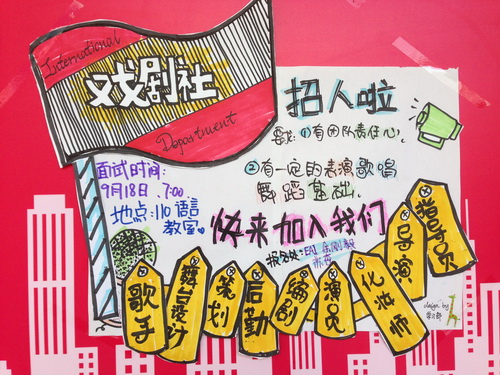 International
戏剧社
Department
招人啦
要求:(1)有团队责任心,
②有一定的表演歌唱
舞蹈基础.
面试时间:
9月18日 7:00
地点:110语言
教室。
快来加入我们
报名处:
歌手
舞台设计
策划
后勤
编剧
演员
化妆师
导演
指导员
design by